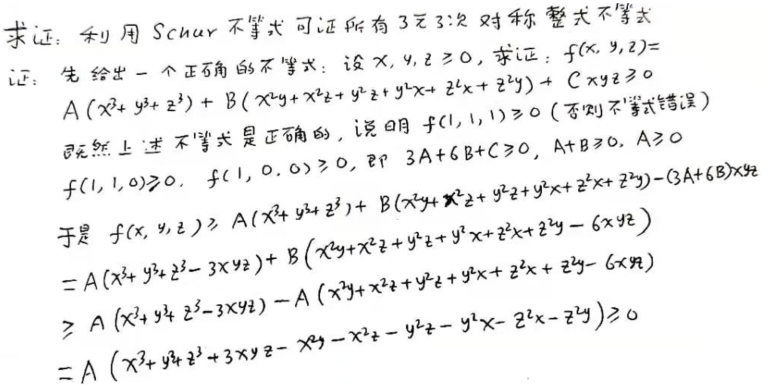 求证: 利用 Schur 不等式可证所有3元3次对称整式不等式
证: 先给出一个正确的不等式: 设 x, y, z ≥ 0, 求证: f(x, y, z)=
A(x³+ y³+ z³) + B(x²y+x²z+ y²z+y²x+ z²x+z²y) + Cxyz ≥ 0
既然上述不等式是正确的, 说明 f(1, 1, 1) ≥ 0 (否则不等式错误)
f(1, 1, 0) ≥ 0. f(1, 0, 0) ≥ 0, 即 3A+6B+C ≥ 0, A+B ≥ 0. A ≥ 0
于是 f(x, y, z) ≥ A(x³+y³+z³) + B(x²y+x²z+y²z+y²x+z²x+z²y)-(3A+6B)xyz
= A(x³+y³+z³-3xyz)+ B(x²y+x²z+y²z+y²x+z²x+z²y-6xyz)
≥ A(x³+y³+z³-3xyz) - A(x²y+x²z+y²z+y²x+z²x+z²y-6xyz)
= A(x³+y³+z³+3xyz-x²y-x²z-y²z-y²x-z²x-z²y) ≥ 0